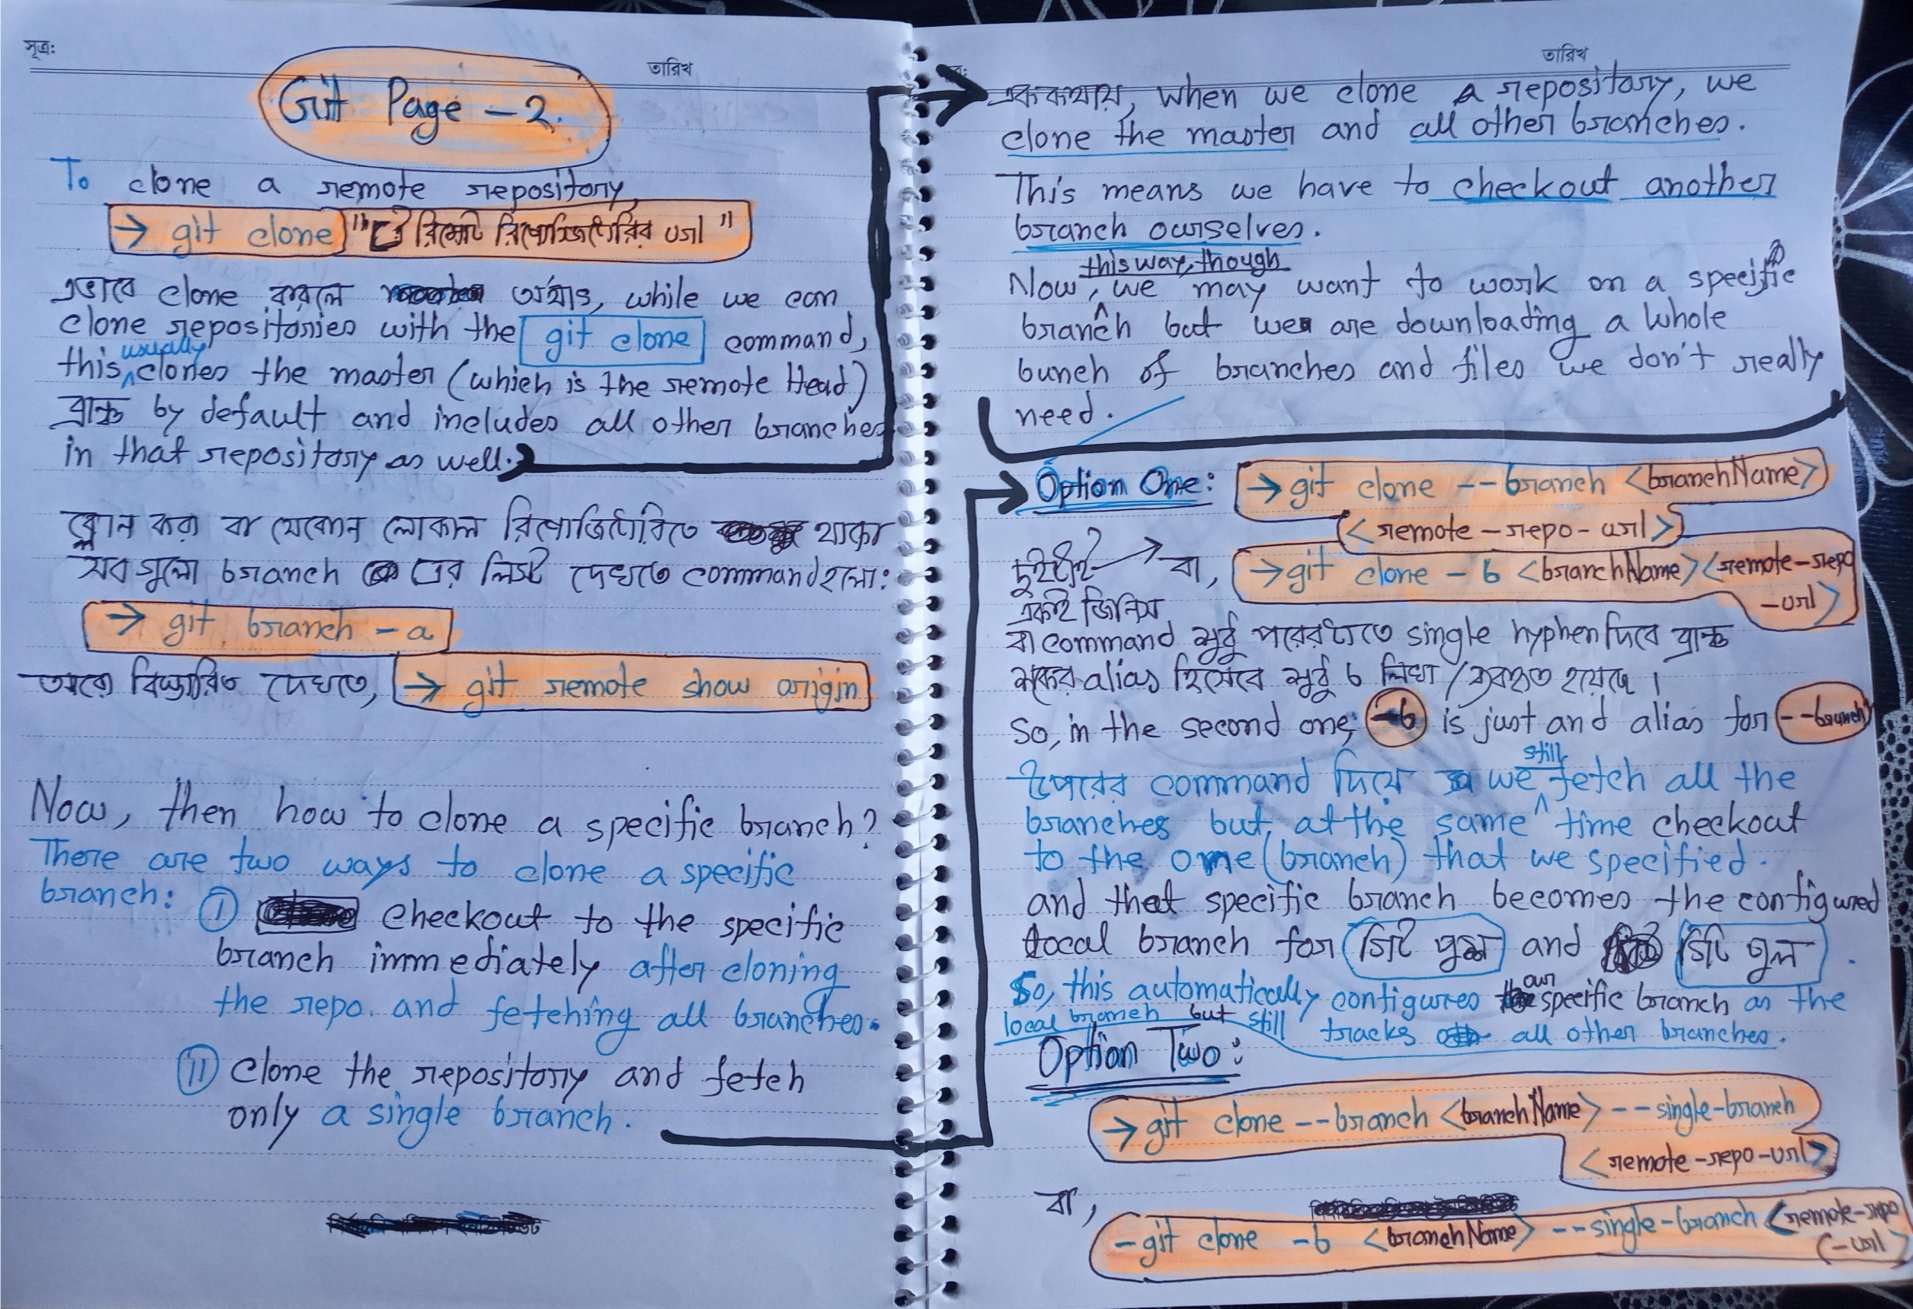 সূত্র:
তারিখ
Git Page - 2.
To clone a remote repository,
→ git clone "ঐ রিমোট রিপোজিটরির url"
এভাবে clone করলে অর্থাৎ, while we can
clone repositories with the git clone command,
this usually clones the master (which is the remote Head)
ব্রাঞ্চ by default and includes all other branches
in that repository as well.
ক্লোন করা বা যেকোন লোকাল রিপোজিটরিতে থাকা
সব গুলো branch এর লিস্ট দেখতে command হলো:
→ git branch - a
আরো বিস্তারিত দেখতে, → git remote show origin
Now, then how to clone a specific branch?
There are two ways to clone a specific
branch: (I) checkout to the specific
branch immediately after cloning
the repo. and fetching all branches.
(II) Clone the repository and fetch
only a single branch.
তারিখ
এককথায়, when we clone a repository, we
clone the master and all other branches.
This means we have to checkout another
branch ourselves.
this way, though
Now, we may want to work on a specific
branch but we are downloading a whole
bunch of branches and files we don't really
need.
Option One: → git clone --branch <branchName>
<remote-repo-url>
দুইটাই → বা, → git clone - b <branchName> <remote-repo
-url>
একই জিনিস
বা command শুধু পরেরটাতে single hyphen দিবে ব্রাঞ্চ
শব্দের alias হিসেবে শুধু b লিখা / ব্যবহৃত হয়েছে।
So, in the second one, -b is just and alias for --branch
উপরের command দিয়ে we still fetch all the
branches but, at the same time checkout
to the one (branch) that we specified.
and that specific branch becomes the configured
local branch for গিট পুশ and গিট পুল .
So, this automatically configures our specific branch as the
local branch but still tracks all other branches.
Option Two:
→ git clone --branch <branchName> --single-branch
<remote-repo-url>
বা,
- git clone -b <branchName> --single-branch <remote-repo
-url>